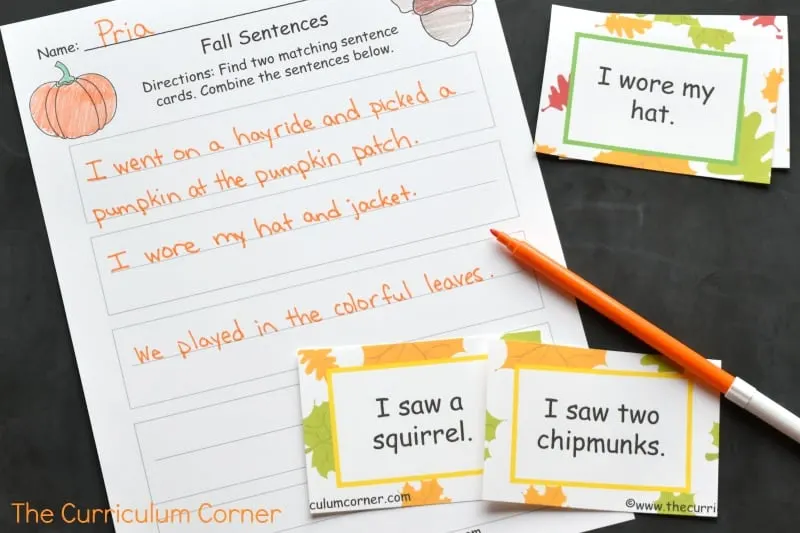 Name: Pria
Fall Sentences
Directions: Find two matching sentence
cards. Combine the sentences below.
I went on a hayride and picked a
pumpkin at the pumpkin patch.
I wore my hat and jacket.
We played in the colorful leaves.
I wore my
hat.
I saw a
squirrel.
culumcorner.com
I saw two
chipmunks.
©www.thecurri
The Curriculum Corner